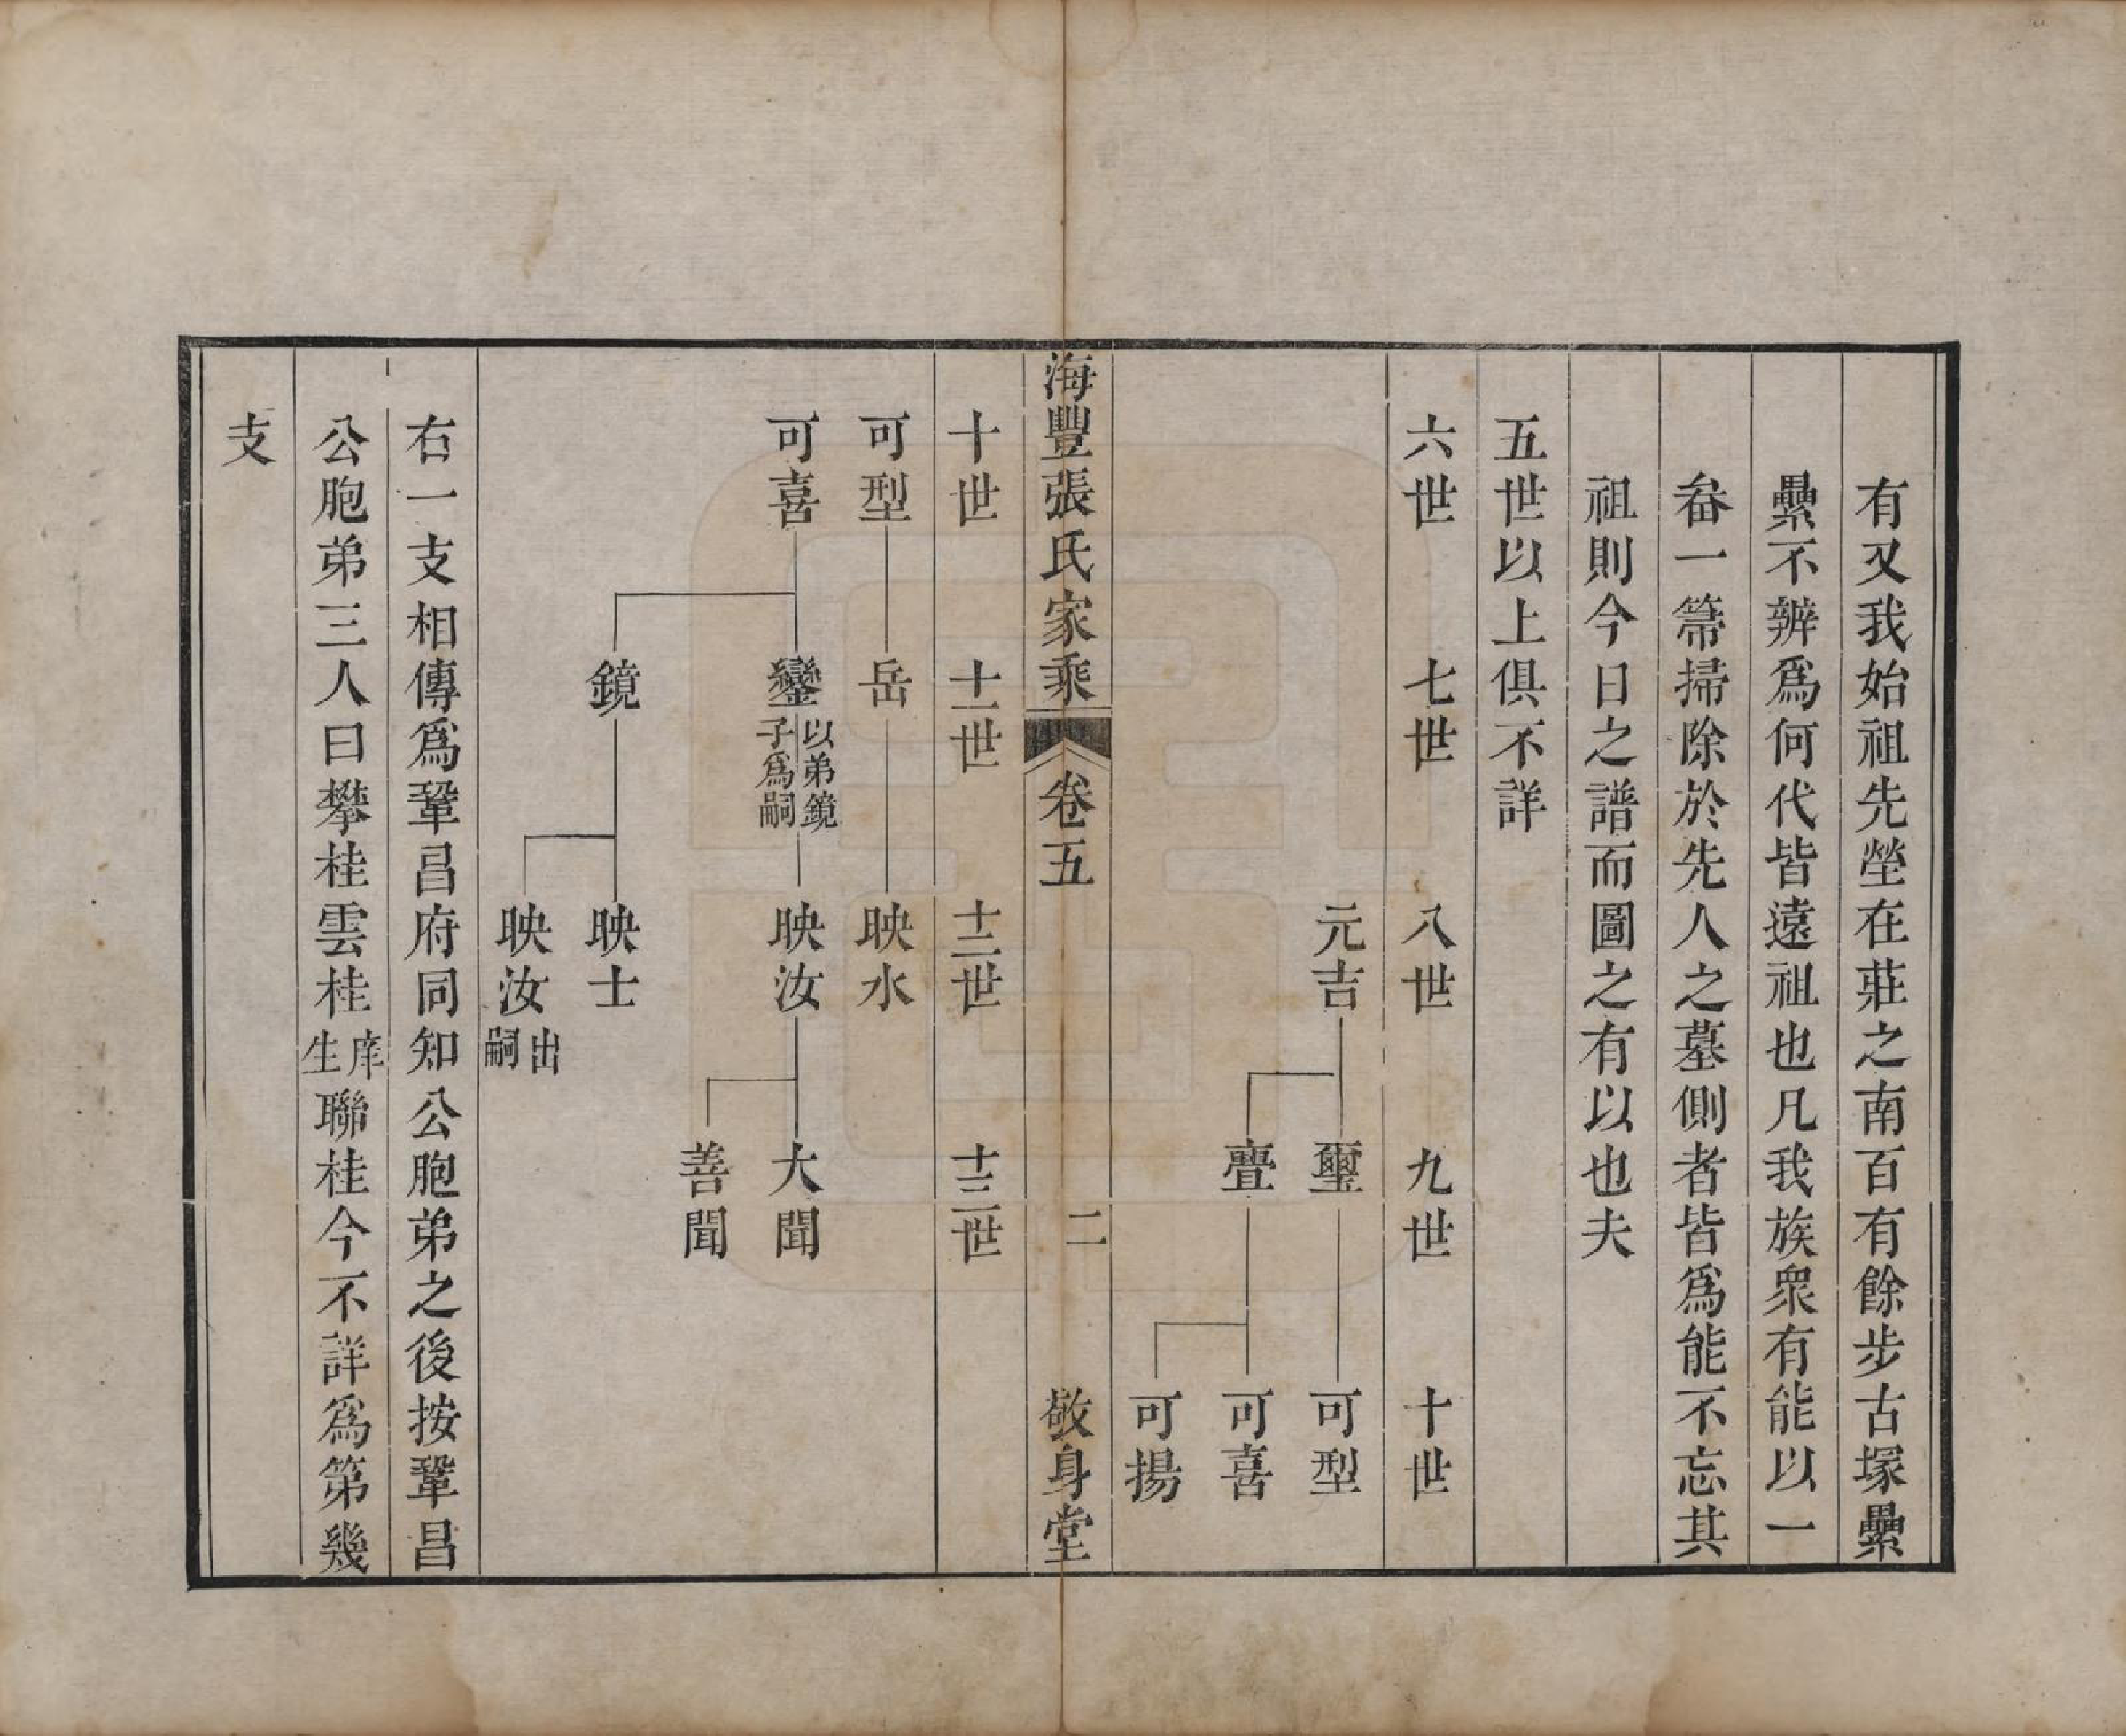 有又我始祖先塋在莊之南百有餘步古塚纍
纍不辨爲何代皆遠祖也凡我族衆有能以一
畚一箒掃除於先人之墓側者皆爲能不忘其
祖則今日之譜而圖之有以也夫
五世以上俱不詳
六世 七世 八世 九世 十世
元吉 璽 可型
疊 可喜
可揚
海豐張氏家乘 卷五 二 敬身堂
十世 十一世 十二世 十三世
可型 岳 映水
可喜 鑾 以弟鏡子爲嗣 映汝 大聞
善聞
鏡 映士
映汝 出嗣
右一支相傳爲鞏昌府同知公胞弟之後按鞏昌
公胞弟三人曰攀桂雲桂庠生聯桂今不詳爲第幾
支